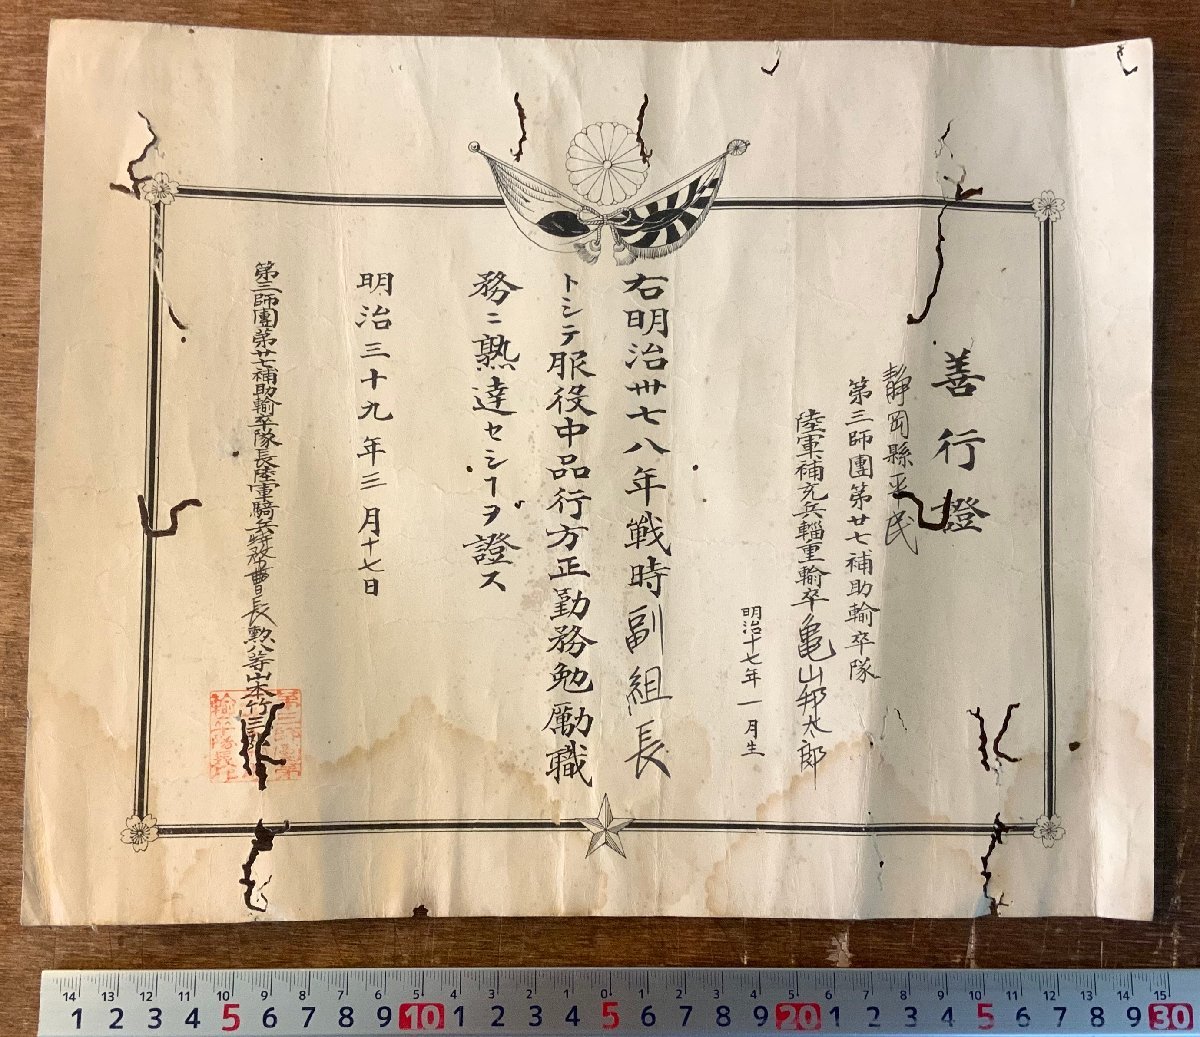 善行證
靜岡縣平民
第三師團第廿七補助輸卒隊
陸軍補充兵輜重輸卒亀山邦太郎
明治十七年一月生
右明治卅七八年戰時副組長
トシテ服役中品行方正勤務勉励職
務ニ熟達セシヿヲ證ス
明治三十九年三月十七日
第三師團第廿七補助輸卒隊長陸軍騎兵特務曹長勲八等山本竹三郎
14 13 12 11 10 9 8 7 6 5 4 3 2 1 0 1 2 3 4 5 6 7 8 9 10 11 12 13 14 15
1 2 3 4 5 6 7 8 9 10 1 2 3 4 5 6 7 8 9 20 1 2 3 4 5 6 7 8 9 30